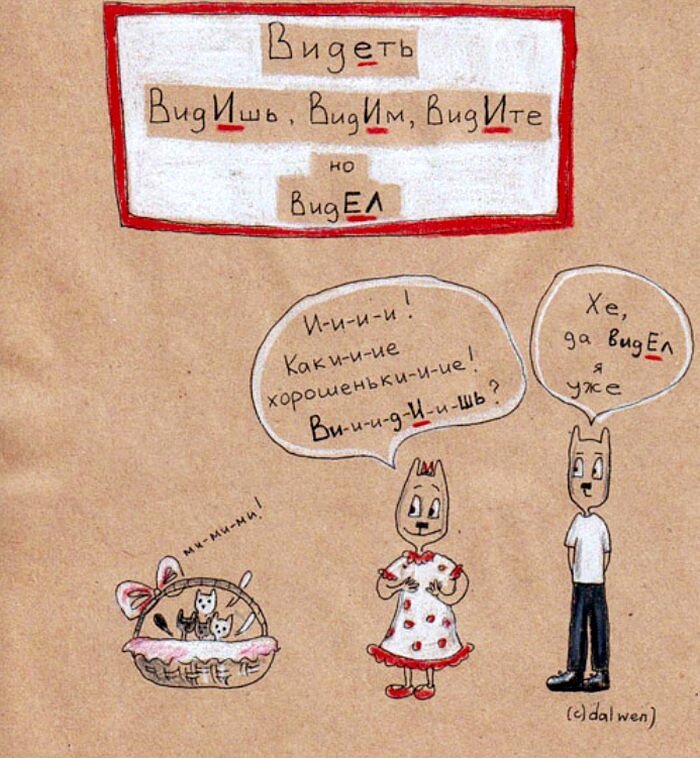 Видеть
ВидИшь, ВидИм, ВидИте
но
ВидЕЛ
И-и-и-и!
Каки-и-ие
хорошеньки-и-ие!
Ви-и-и-д-И-и-шь?
Хе,
да видЕл
я
уже
ми-ми-ми!
(c)dalwen)